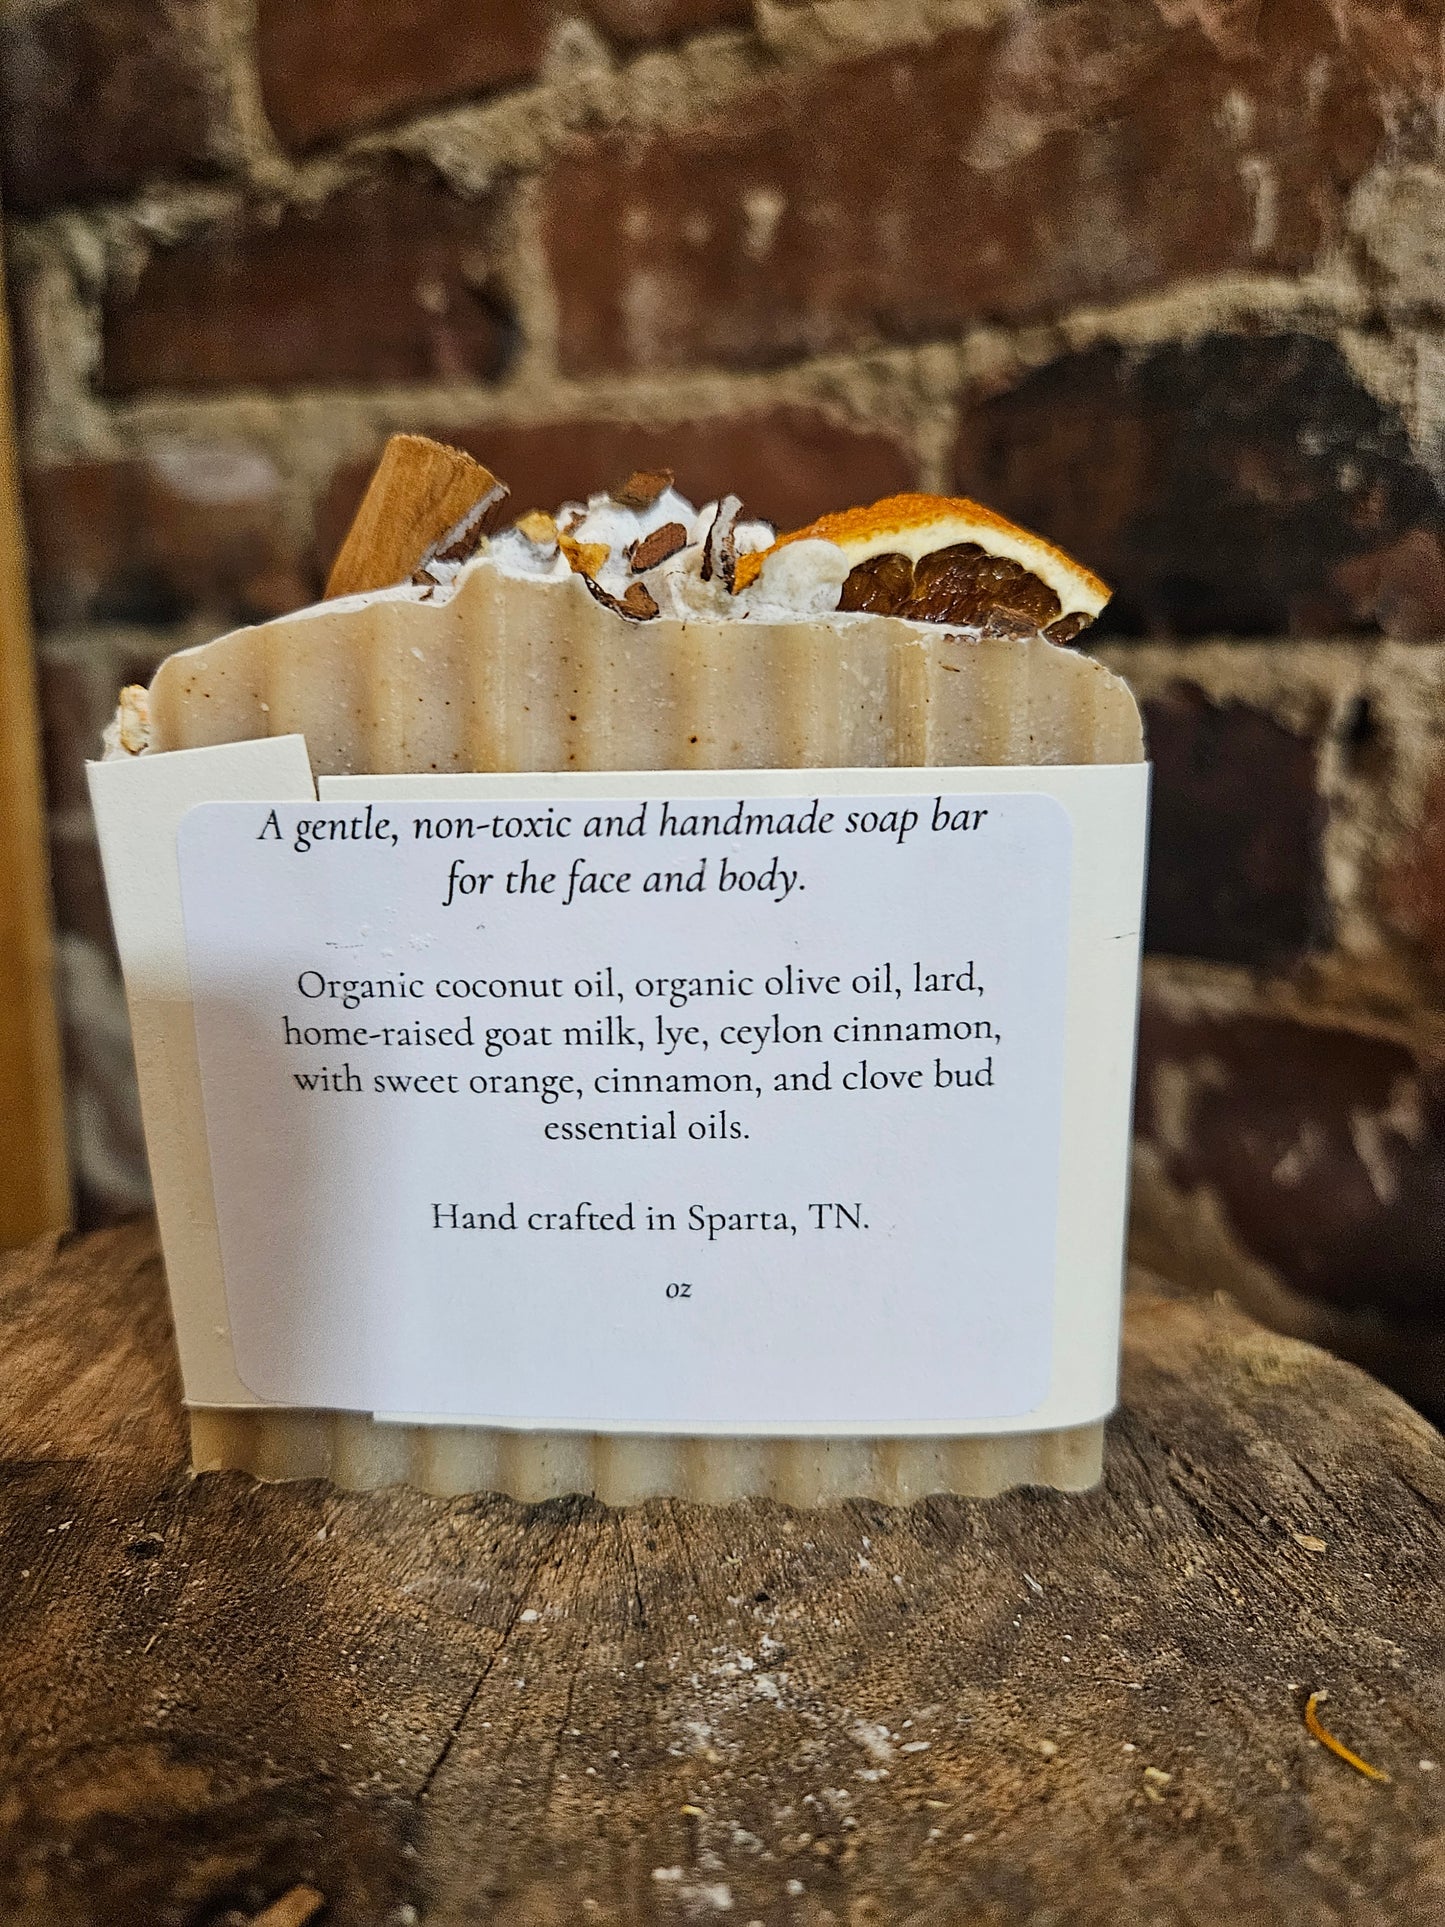 A gentle, non-toxic and handmade soap bar
for the face and body.
Organic coconut oil, organic olive oil, lard,
home-raised goat milk, lye, ceylon cinnamon,
with sweet orange, cinnamon, and clove bud
essential oils.
Hand crafted in Sparta, TN.
oz